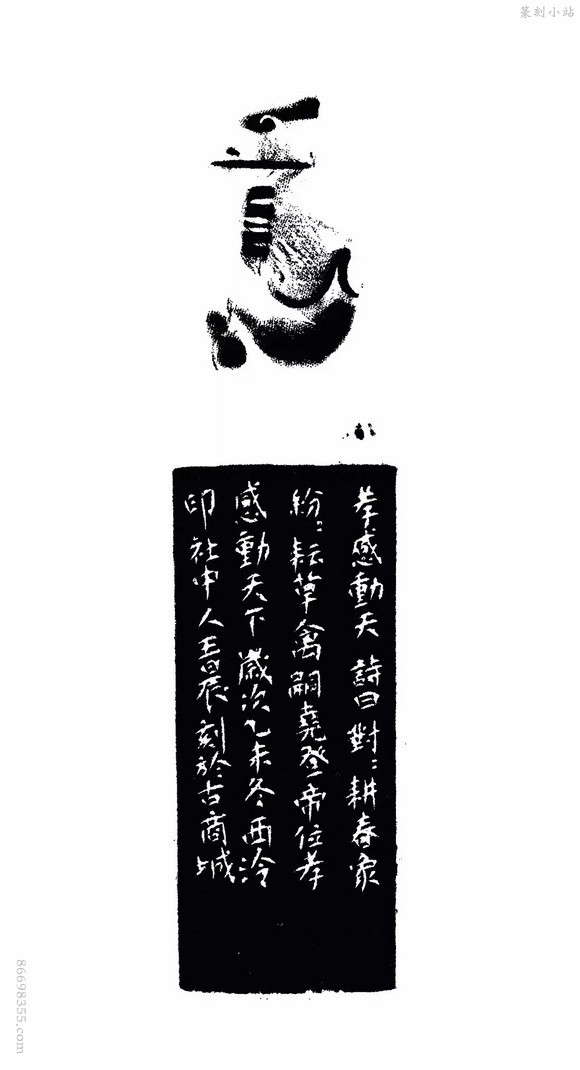 篆刻小站
孝感動天 詩曰對〻耕春象
紛〻耘草禽嗣堯登帝位孝
感動天下 歲次乙未冬西泠
印社中人王晨刻於古商城
86698355.com